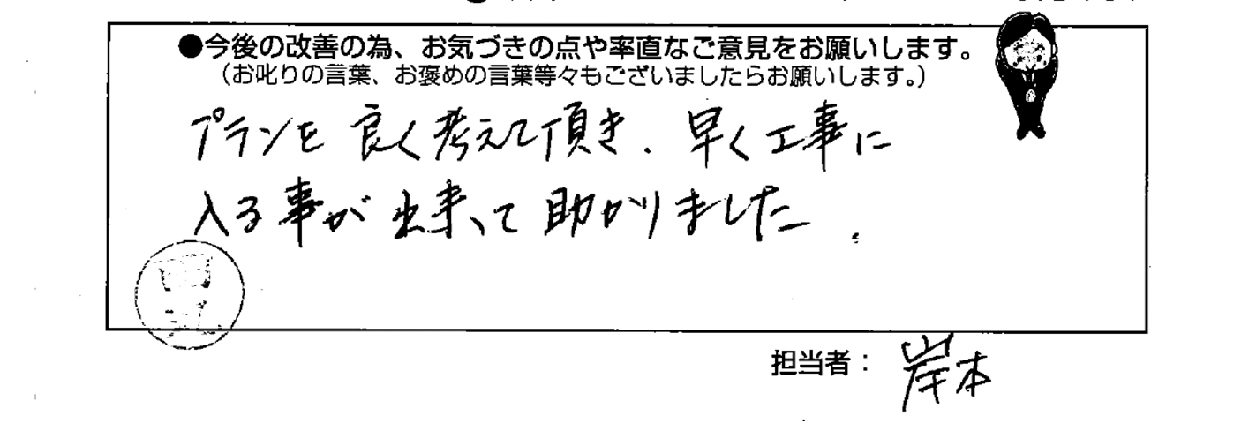 ●今後の改善の為、お気づきの点や率直なご意見をお願いします。
（お叱りの言葉、お褒めの言葉等々もございましたらお願いします。）
プランを良く考えて頂き、早く工事に
入る事が出来て助かりました。
担当者：岸本